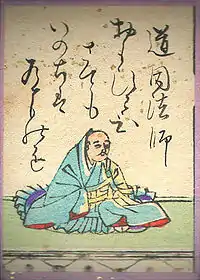 道因法師
おもひわひ
さても
いのちは
ある